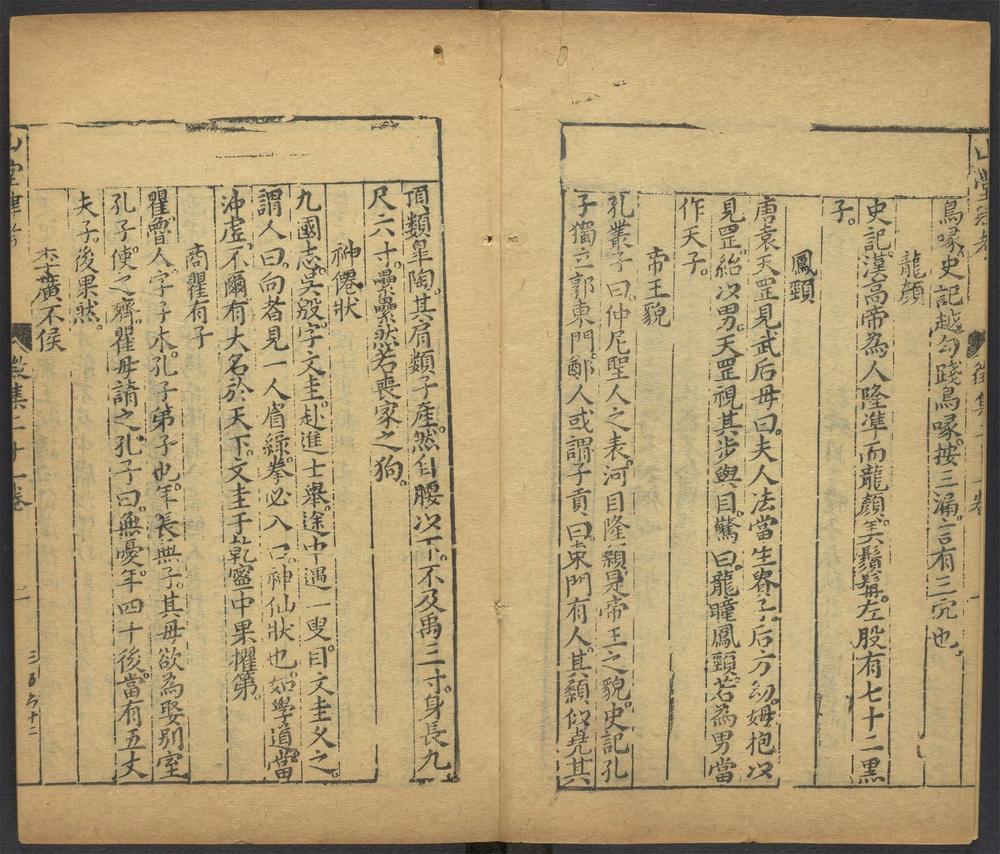 山堂肆考
徵集二十一卷
鳥喙史記越勾踐鳥喙按三漏言有三穴也
龍顔
史記漢高帝為人隆準而龍顔美鬚髯左股有七十二黑
子
鳳頸
唐袁天罡見武后母曰夫人法當生貴子后方幼姆抱以
見罡紿以男天罡視其步與目驚曰龍瞳鳳頸若為男當
作天子
帝王貌
孔叢子曰仲尼聖人之表河目隆顙是帝王之貌史記孔
子獨立郭東門鄭人或謂子貢曰東門有人其顙似堯其
項類臯陶其肩類子產然自腰以下不及禹三寸身長九
尺六寸纍纍然若喪家之狗
神僊狀
九國志吳殷字文圭赴進士舉途中遇一叟目文圭久之
謂人曰向者見一人眉綠拳必入口神仙狀也如學道當
沖虛不爾有大名於天下文圭于乾寧中果擢第
商瞿有子
瞿魯人字子木孔子弟子也年長無子其母欲為娶別室
孔子使之齊瞿母請之孔子曰無憂年四十後當有五丈
夫子後果然
李廣不侯
山堂肆考
徵集二十一卷
二